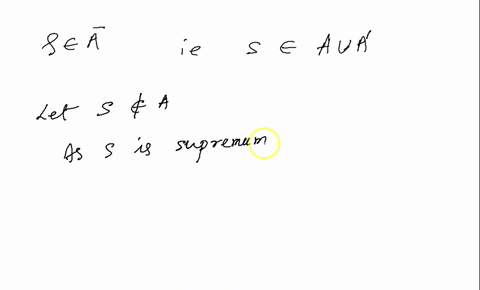 S ∈ Ā ie S ∈ A ∪ A'
Let S ∉ A
As S is supremum